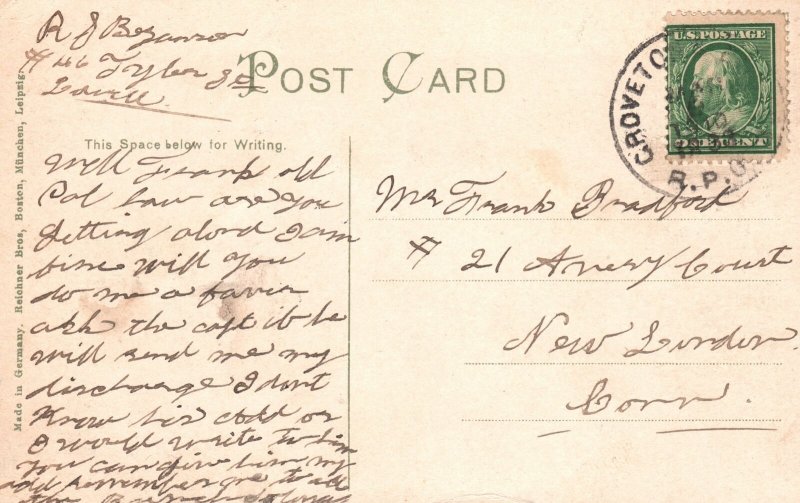 R J Bezanson
# 46 Tyler St
POST CARD
This Space below for Writing.
Well Frank old
Pal how are you
getting alond I am
fine will you
do me a favor
ask the capt if he
will send me my
discharge I dont
Know his add or
I would write to him
You can give him my
add remember me to all
the
Mr Frank Bradford
# 21 Avery Court
New London
Conn.
U.S. POSTAGE
ONE CENT
GROVETO
R.P.O.
Made in Germany. Reichner Bros, Boston, München, Leipzig.